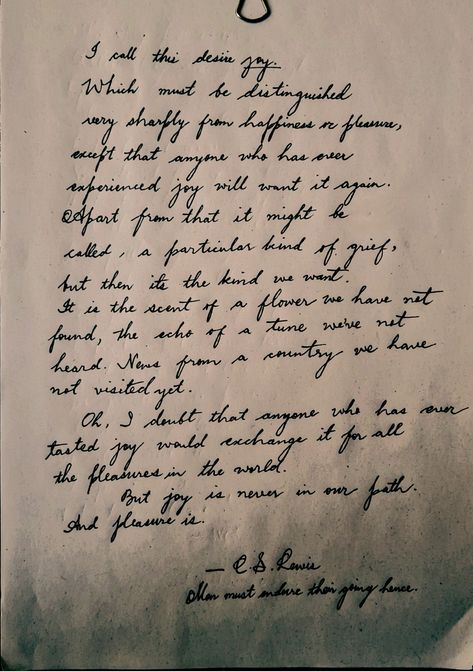 I call this desire joy.
Which must be distinguished
very sharply from happiness or pleasure,
except that anyone who has ever
experienced joy will want it again.
Apart from that it might be
called, a particular kind of grief,
but then it's the kind we want.
It is the scent of a flower we have not
found, the echo of a tune we've not
heard. News from a country we have
not visited yet.
Oh, I doubt that anyone who has ever
tasted joy would exchange it for all
the pleasures in the world.
But joy is never in our path.
And pleasure is.
— C. S. Lewis
Man must endure their going hence.